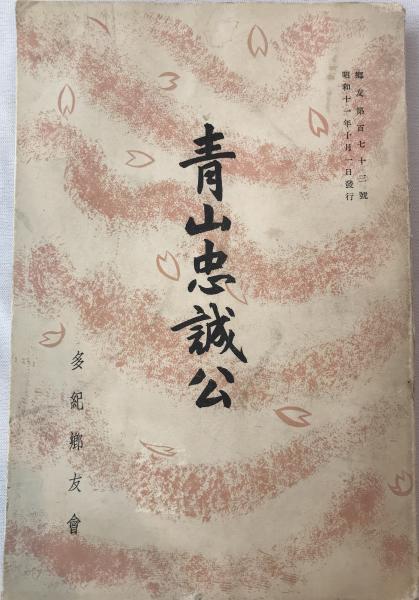 郷友第百七十三號
昭和十一年十月一日發行
青山忠誠公
多紀郷友會